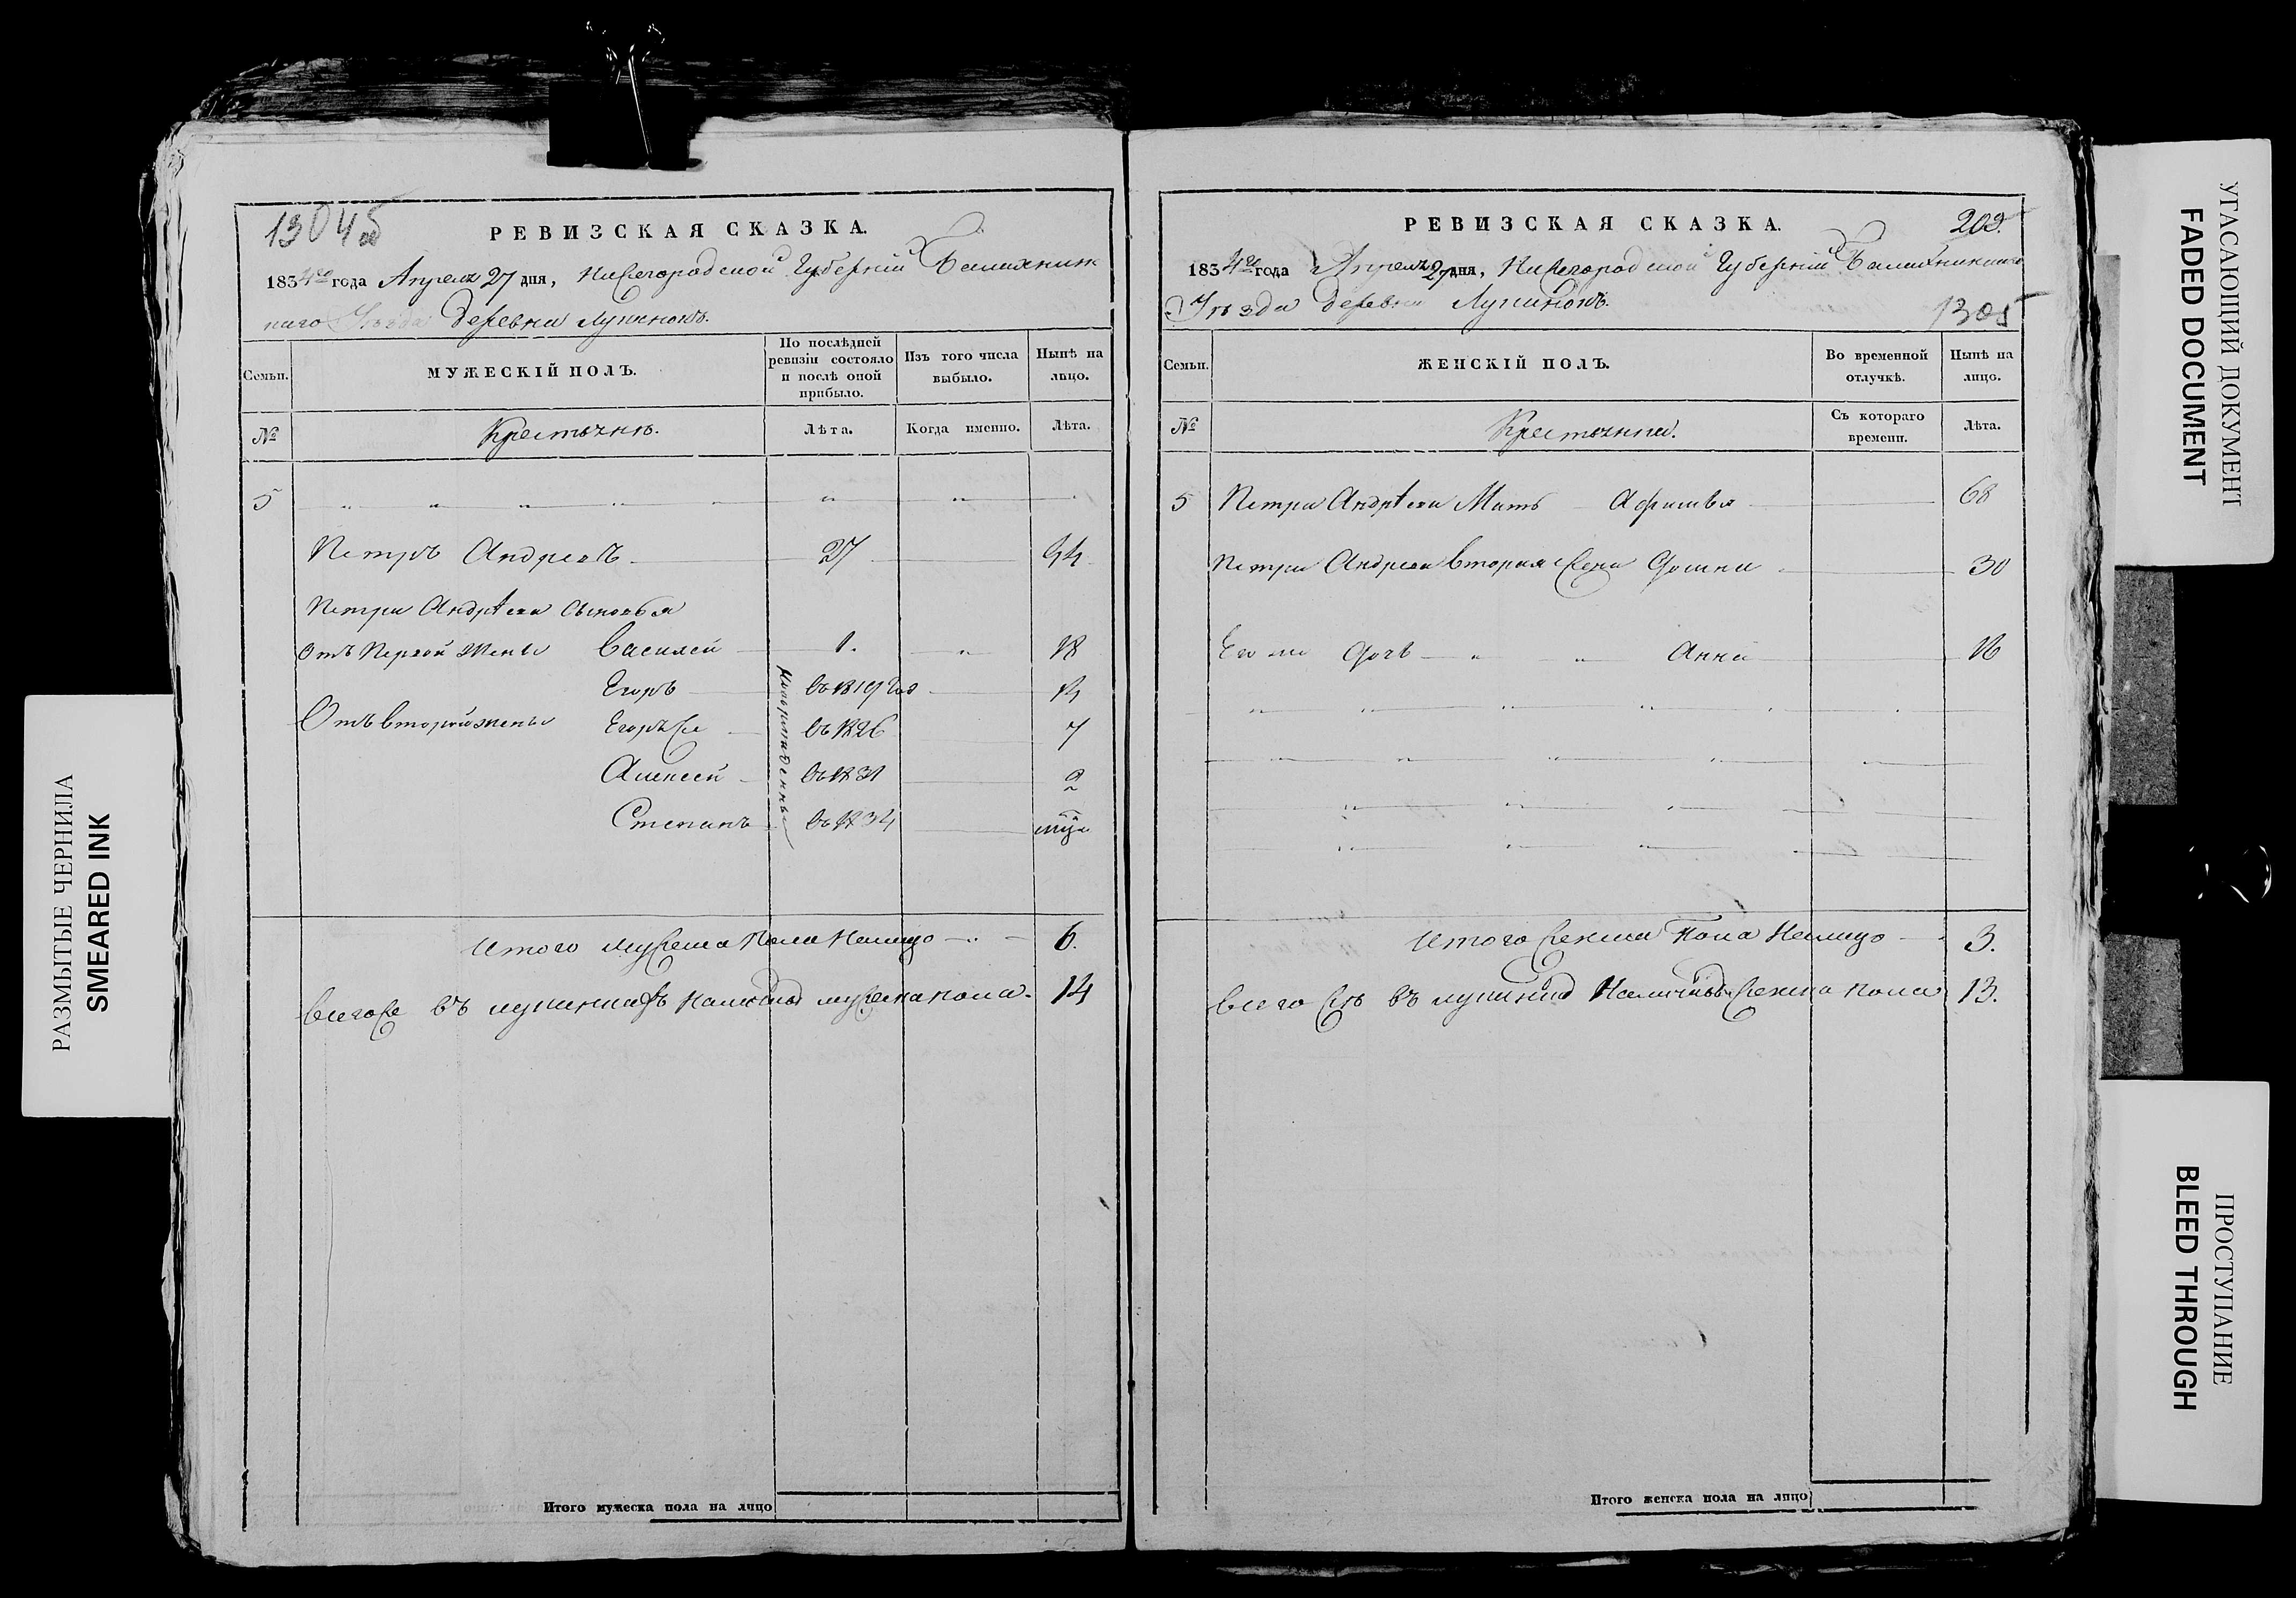 1304об
РЕВИЗСКАЯ СКАЗКА.
1834го года Апреля 27 дня, Нижегородской Губернии Балахнин
скаго Уезда Деревни Лупинокъ.
Семьи.
МУЖЕСКІЙ ПОЛЪ.
По послѣдней
ревизіи состояло
и послѣ оной
прибыло.
Изъ того числа
выбыло.
Нынѣ на
лицо.
№
Крестьянъ.
Лѣта.
Когда именно.
Лѣта.
5
Петръ Андреевъ 27 44
Петра Андрѣева сыновья
Отъ Первой жены Василей 1. 18
Егоръ въ 1819 год 14
Отъ второй жены Егоръ же въ 1826 7
Алексей въ 1831 2
Степанъ въ 1834
новорожденные
Итого мужеска Пола Налицо 6.
Всего же въ лупинкахъ мужеска пола. 14
Итого мужеска пола на лицо
РЕВИЗСКАЯ СКАЗКА.
203.
1834го года Апреля 27 дня, Нижегородской Губернии Балахнинскаго
Уезда деревни Лупинокъ.
1305
Семьи.
ЖЕНСКІЙ ПОЛЪ.
Во временной
отлучкѣ.
Нынѣ на
лицо.
№
Крестьянки.
Съ котораго
времени.
Лѣта.
5 Петра Андрѣева Мать Афимья 68
Петра Андреева вторая жена 30
Его же дочь Анна 16
Итого женска Пола Налицо 3.
Всего женска пола 13.
Итого женска пола на лицо
РАЗМЫТЫЕ ЧЕРНИЛА
SMEARED INK
УГАСАЮЩИЙ ДОКУМЕНТ
FADED DOCUMENT
ПРОСТУПАНИЕ
BLEED THROUGH